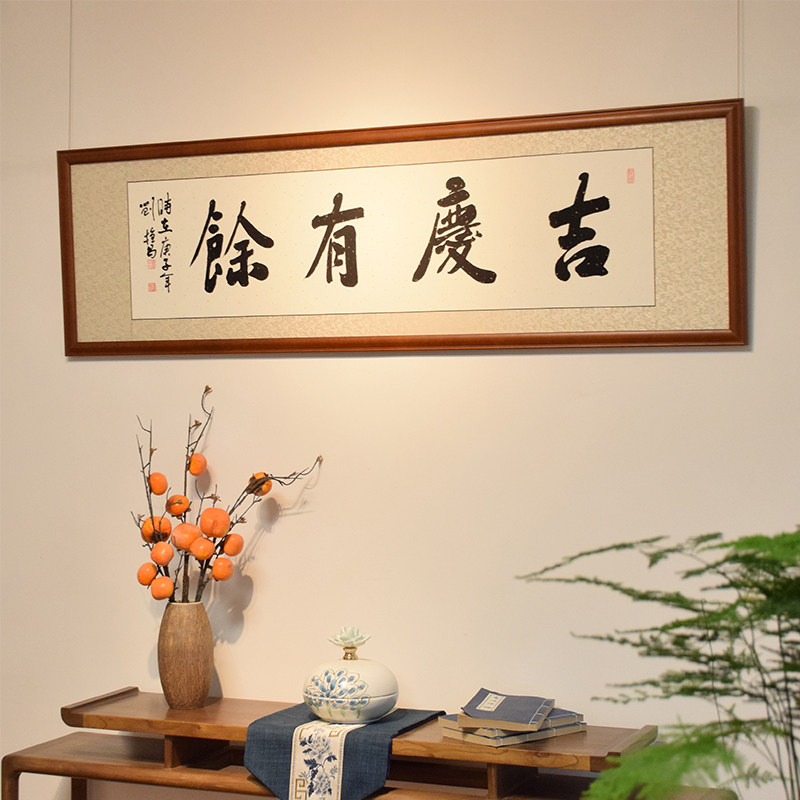 吉慶有餘
時在庚子年
劉